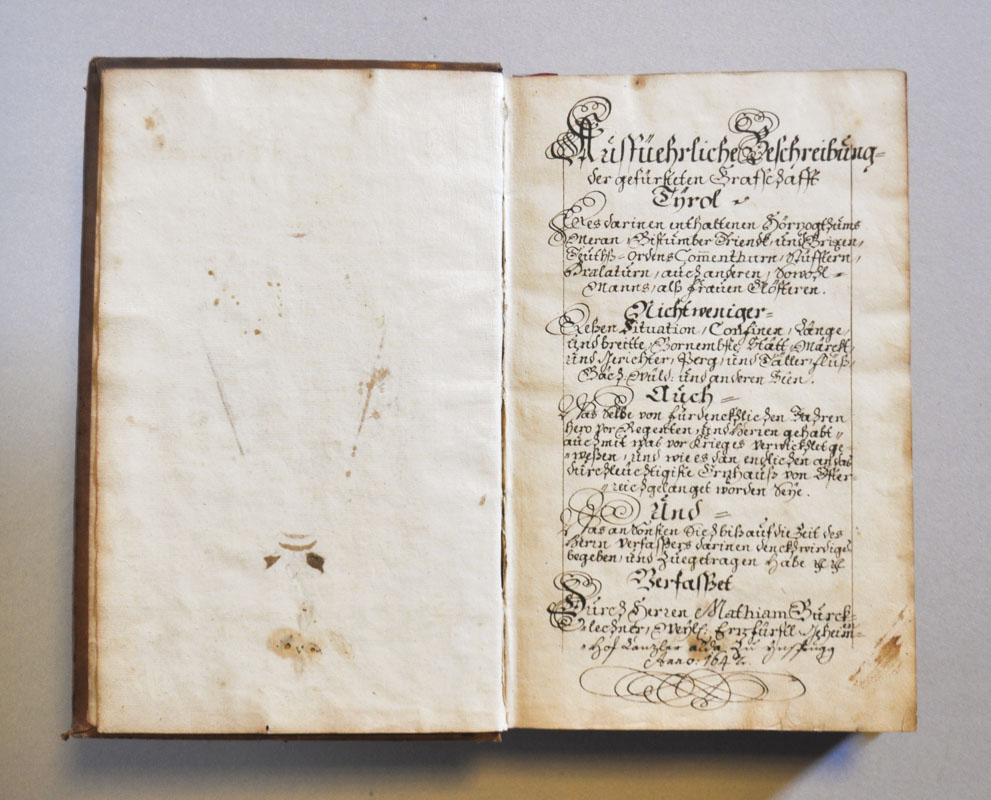 Ausfüehrliche Beschreibung=
der gefürsteten Grafschafft
Tÿrol
Des darinen enthaltenen Hörzogthums
Meran, Bistumber Triendt, und Brixen,
Teütsch=Ordens Comenthurn, Stüfftern,
Prælaturn, auch anderen, sowohl=
Manns, alß frauen Clösteren.
Nicht weniger=
Deßen Situation, Confinen, Länge,
und breitte, Vornembste Statt, Märckt,
und Gerichter, Berg, und Täller, fluß,
Bäch, Wüld: und anderen Seen.
Auch=
Was selbe von fürdencklichen Jahren
hero vor Regenten, und Herren gehabt
auch mit was vor Krieges verwicklet ge=
weßen, und wie es dan endlichen an das
durchleuchtigiste Ertzhauß von Öster=
reich gelanget worden seÿe.
Und=
Was ansonsten sich biß auf die Zeit des
Herrn verfaßers darinen denckwirdiges
begeben, und zuegetragen habe
Verfasset
Durch Herren Mathiam Burck=
lechner, Weÿl: Ertzfürstl. Geheim=
Hof Canzler alda zu
Anno: 164